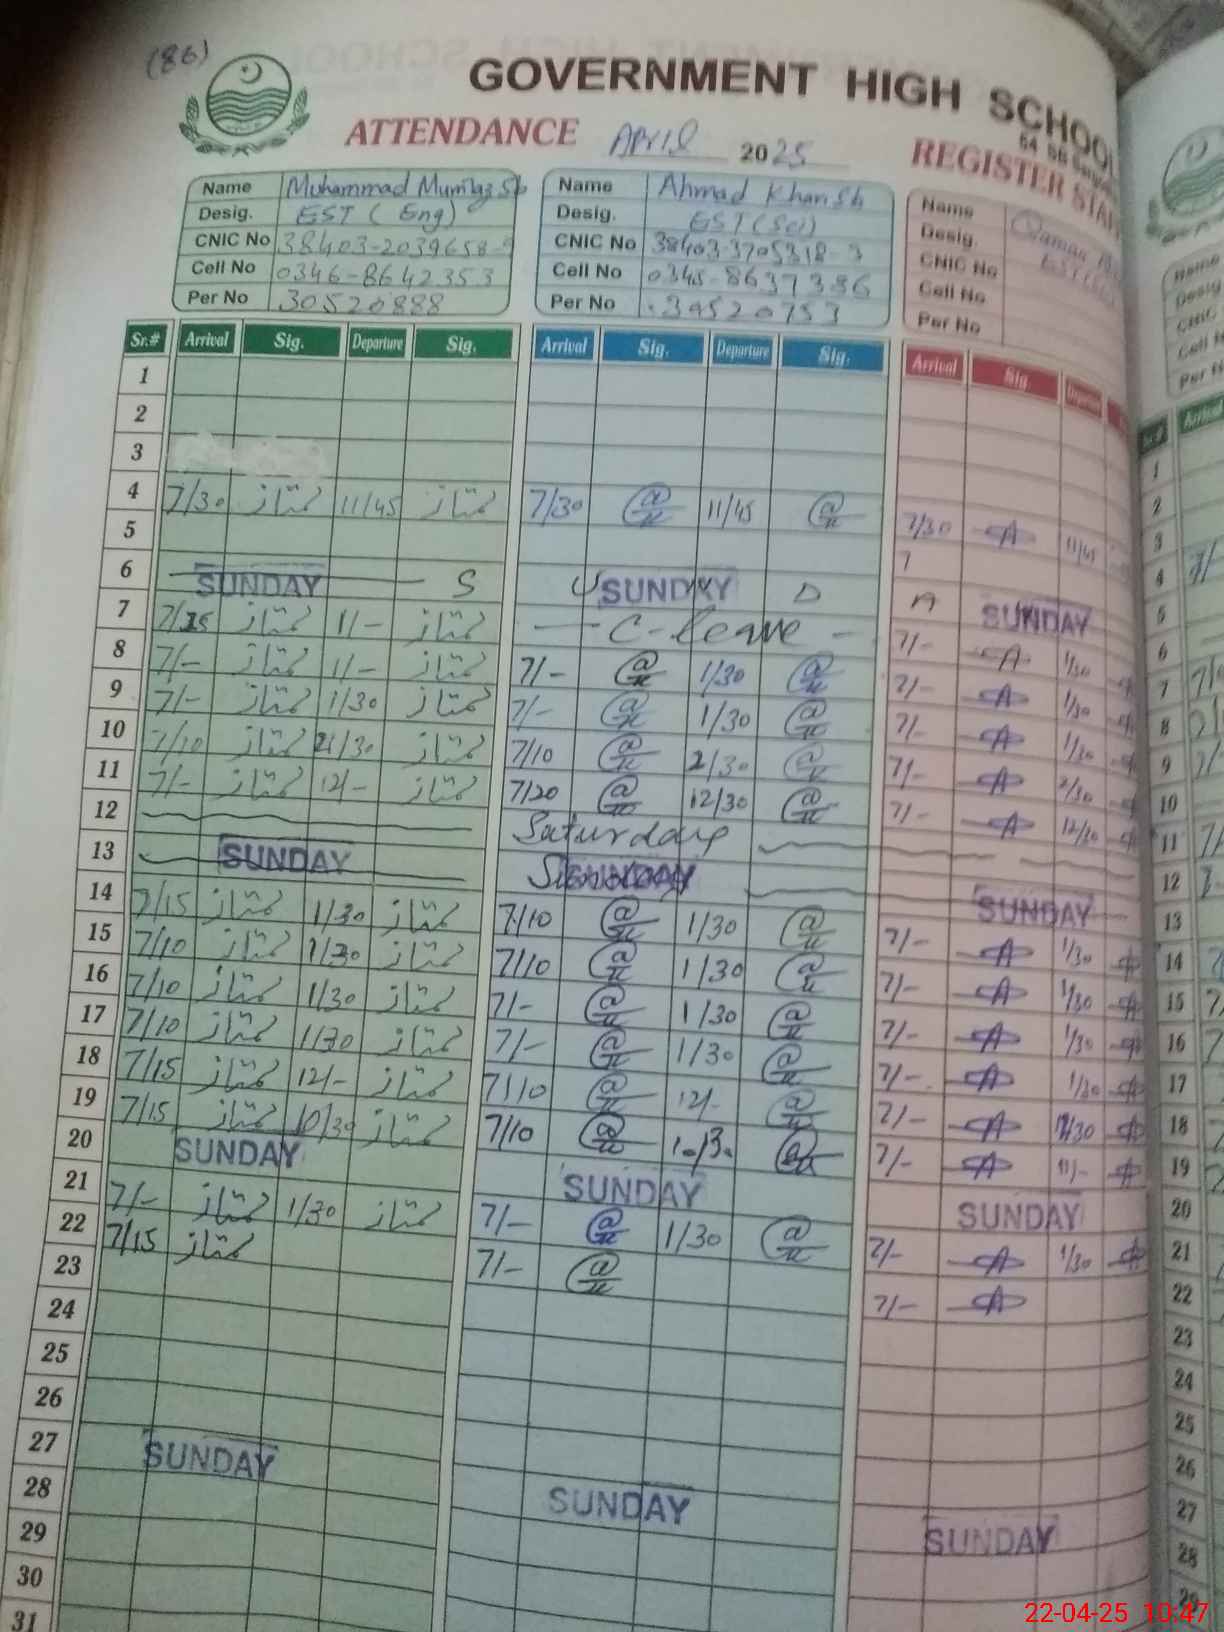 (86)
GOVERNMENT HIGH SCHOOL
ATTENDANCE April 2025 REGISTER STAF
Name Muhammad Mumtaz Sb
Desig. EST (Eng)
CNIC No 38403-2039658-
Cell No 0346-8642353
Per No 30520888
Name Ahmad Khan Sb
Desig. EST (Sci)
CNIC No 38403-3705318-3
Cell No 0345-8637386
Per No
Name
Desig.
CNIC No
Cell No
Per No
Sr.# Arrival Sig. Departure Sig. Arrival Sig. Departure Sig. Arrival Sig
1
2
3
4 7/30 ممتاز 11/45 ممتاز 7/30 11/45 7/30 11/45
5
6 SUNDAY S U SUNDAY D A SUNDAY
7 ممتاز 11/- ممتاز C-leave 7/- 1/30
8 7/- ممتاز 11/- ممتاز 7/- 1/30 7/- 1/30
9 7/- ممتاز 1/30 ممتاز 7/- 1/30 7/- 1/30
10 7/10 ممتاز ممتاز 7/10 2/30 7/- 2/30
11 7/- ممتاز 12/- ممتاز 7/20 12/30 7/- 12/30
12 Saturday
13 SUNDAY SUNDAY SUNDAY
14 7/15 ممتاز 1/30 ممتاز 7/10 1/30 7/- 1/30
15 7/10 ممتاز 1/30 ممتاز 7/10 1/30 7/- 1/30
16 7/10 ممتاز 1/30 ممتاز 7/- 1/30 7/- 1/30
17 7/10 ممتاز 1/30 ممتاز 7/- 1/30 7/- 1/30
18 7/15 ممتاز 12/- ممتاز 7/10 12/- 7/-
19 7/15 ممتاز 10/30 ممتاز 7/10 10/30 7/- 11/-
20 SUNDAY SUNDAY SUNDAY
21 7/- ممتاز 1/30 ممتاز 7/- 1/30 7/- 1/30
22 7/15 ممتاز 7/- 7/-
23
24
25
26
27 SUNDAY SUNDAY SUNDAY
28
29
30
31
1
2
3
4
5
6
7
8
9
10
11
12
13
14
15
16
17
18
19
20
21
22
23
24
25
26
27
28
22-04-25 10:47